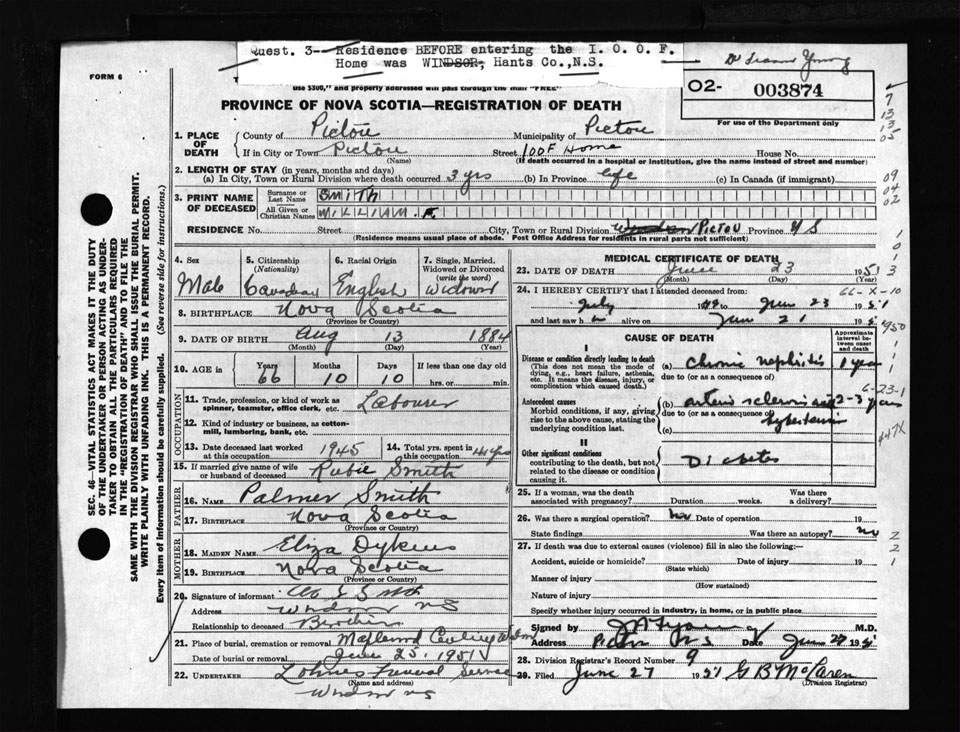 Quest. 3-- Residence BEFORE entering the I. O. O. F.
Home was WINDSOR, Hants Co., N.S.
FORM 6
use $300," and property addressed will pass through the mail "FREE"
O2- 003874
For use of the Department only
PROVINCE OF NOVA SCOTIA—REGISTRATION OF DEATH
1. PLACE OF DEATH
County of Pictou Municipality of Pictou
If in City or Town Pictou Street IOOF Home House No.
(Name) (If death occurred in a hospital or institution, give the name instead of street and number)
2. LENGTH OF STAY (in years, months and days)
(a) In City, Town or Rural Division where death occurred 3 yrs (b) In Province life (c) In Canada (if immigrant)
3. PRINT NAME OF DECEASED
Surname or Last Name SMITH
All Given or Christian Names WILLIAM . F.
RESIDENCE No. Street City, Town or Rural Division Windsor PICTOU Province N S
(Residence means usual place of abode. Post Office Address for residents in rural parts not sufficient)
4. Sex Male
5. Citizenship (Nationality) Canadian
6. Racial Origin English
7. Single, Married, Widowed or Divorced (write the word) Widower
8. BIRTHPLACE Nova Scotia
(Province or Country)
9. DATE OF BIRTH Aug 13 1884
(Month) (Day) (Year)
10. AGE in Years 66 Months 10 Days 10 If less than one day
hrs. or min.
OCCUPATION
11. Trade, profession, or kind of work as spinner, teamster, office clerk, etc. Labourer
12. Kind of industry or business, as cotton-mill, lumbering, bank, etc.
13. Date deceased last worked at this occupation 1945
14. Total yrs. spent in this occupation 44 yrs
15. If married give name of wife or husband of deceased Rubie Smith
FATHER
16. NAME Palmer Smith
17. BIRTHPLACE Nova Scotia
(Province or Country)
MOTHER
18. MAIDEN NAME Eliza Dykens
19. BIRTHPLACE Nova Scotia
(Province or Country)
20. Signature of informant
Address Windsor NS
Relationship to deceased Brother
21. Place of burial, cremation or removal Maplewood Cemetery Windsor
Date of burial or removal June 25, 1951
22. UNDERTAKER Lohnes Funeral Service
(Name and address)
Windsor NS
MEDICAL CERTIFICATE OF DEATH
23. DATE OF DEATH June 23 1951
(Month) (Day)
24. I HEREBY CERTIFY that I attended deceased from:
July 19 to June 23 1951
and last saw h m alive on June 21 195
CAUSE OF DEATH
Approximate interval between onset and death
I
Disease or condition directly leading to death
(This does not mean the mode of dying, e.g., heart failure, asthenia, etc. It means the disease, injury, or complication which caused death.)
(a) Chronic nephritis 1 year
due to (or as a consequence of)
Antecedent causes
Morbid conditions, if any, giving rise to above cause, stating the underlying condition last.
(b) arterio sclerosis and 2-3 years
due to (or as a consequence of)
hypertension
(c)
II
Other significant conditions
contributing to the death, but not related to the disease or condition causing it.
Diabetes
25. If a woman, was the death associated with pregnancy? Duration weeks. Was there a delivery?
26. Was there a surgical operation? no Date of operation 19
State findings Was there an autopsy? no
27. If death was due to external causes (violence) fill in also the following:—
Accident, suicide or homicide? 19
(State which)
Manner of injury
(How sustained)
Nature of injury
Specify whether injury occurred in industry, in home, or in public place
Signed by M.D.
Address Pictou NS June 27 1951
28. Division Registrar's Record Number 9
29. Filed June 27 1951 G B McLaren
(Division Registrar)
SEC. 46—VITAL STATISTICS ACT MAKES IT THE DUTY OF THE UNDERTAKER OR PERSON ACTING AS UNDERTAKER TO OBTAIN ALL THE PARTICULARS REQUIRED IN THE "REGISTRATION OF DEATH" AND TO FILE THE SAME WITH THE DIVISION REGISTRAR WHO SHALL ISSUE THE BURIAL PERMIT.
WRITE PLAINLY WITH UNFADING INK. THIS IS A PERMANENT RECORD.
Every item of Information should be carefully supplied. (See reverse side for instructions.)